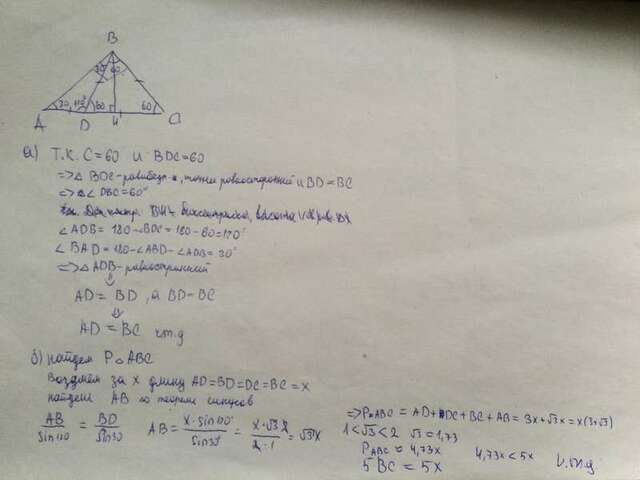 B
30° 60
A 30 60 60 C
D H
а) Т.К. C=60 и BDC=60
=>△ BDC- равнобедр-й, точнее равносторонний и BD=BC
=> ∠ DBC=60°
BH- биссектриса, высота
∠ADB= 180-∠BDC = 180-60=120°
∠ BAD=180-∠ABD-∠ADB= 30°
=>△ ADB-
⇓
AD= BD, а BD=BC
⇓
AD= BC ч.т.д
б) найдем P△ABC
Возьмём за x длину AD=BD=DC=BC=x
найдём AB по теореме синусов
AB/sin120 = BD/sin30 AB= x·sin120°/sin30° = x·√3·2/2·1 = √3x
=>P△ABC = AD+DC+BC+AB= 3x+√3x=x(3+√3)
1<√3<2 √3=1,73
P△ABC = 4,73x 4,73x<5x
5BC = 5x ч.т.д